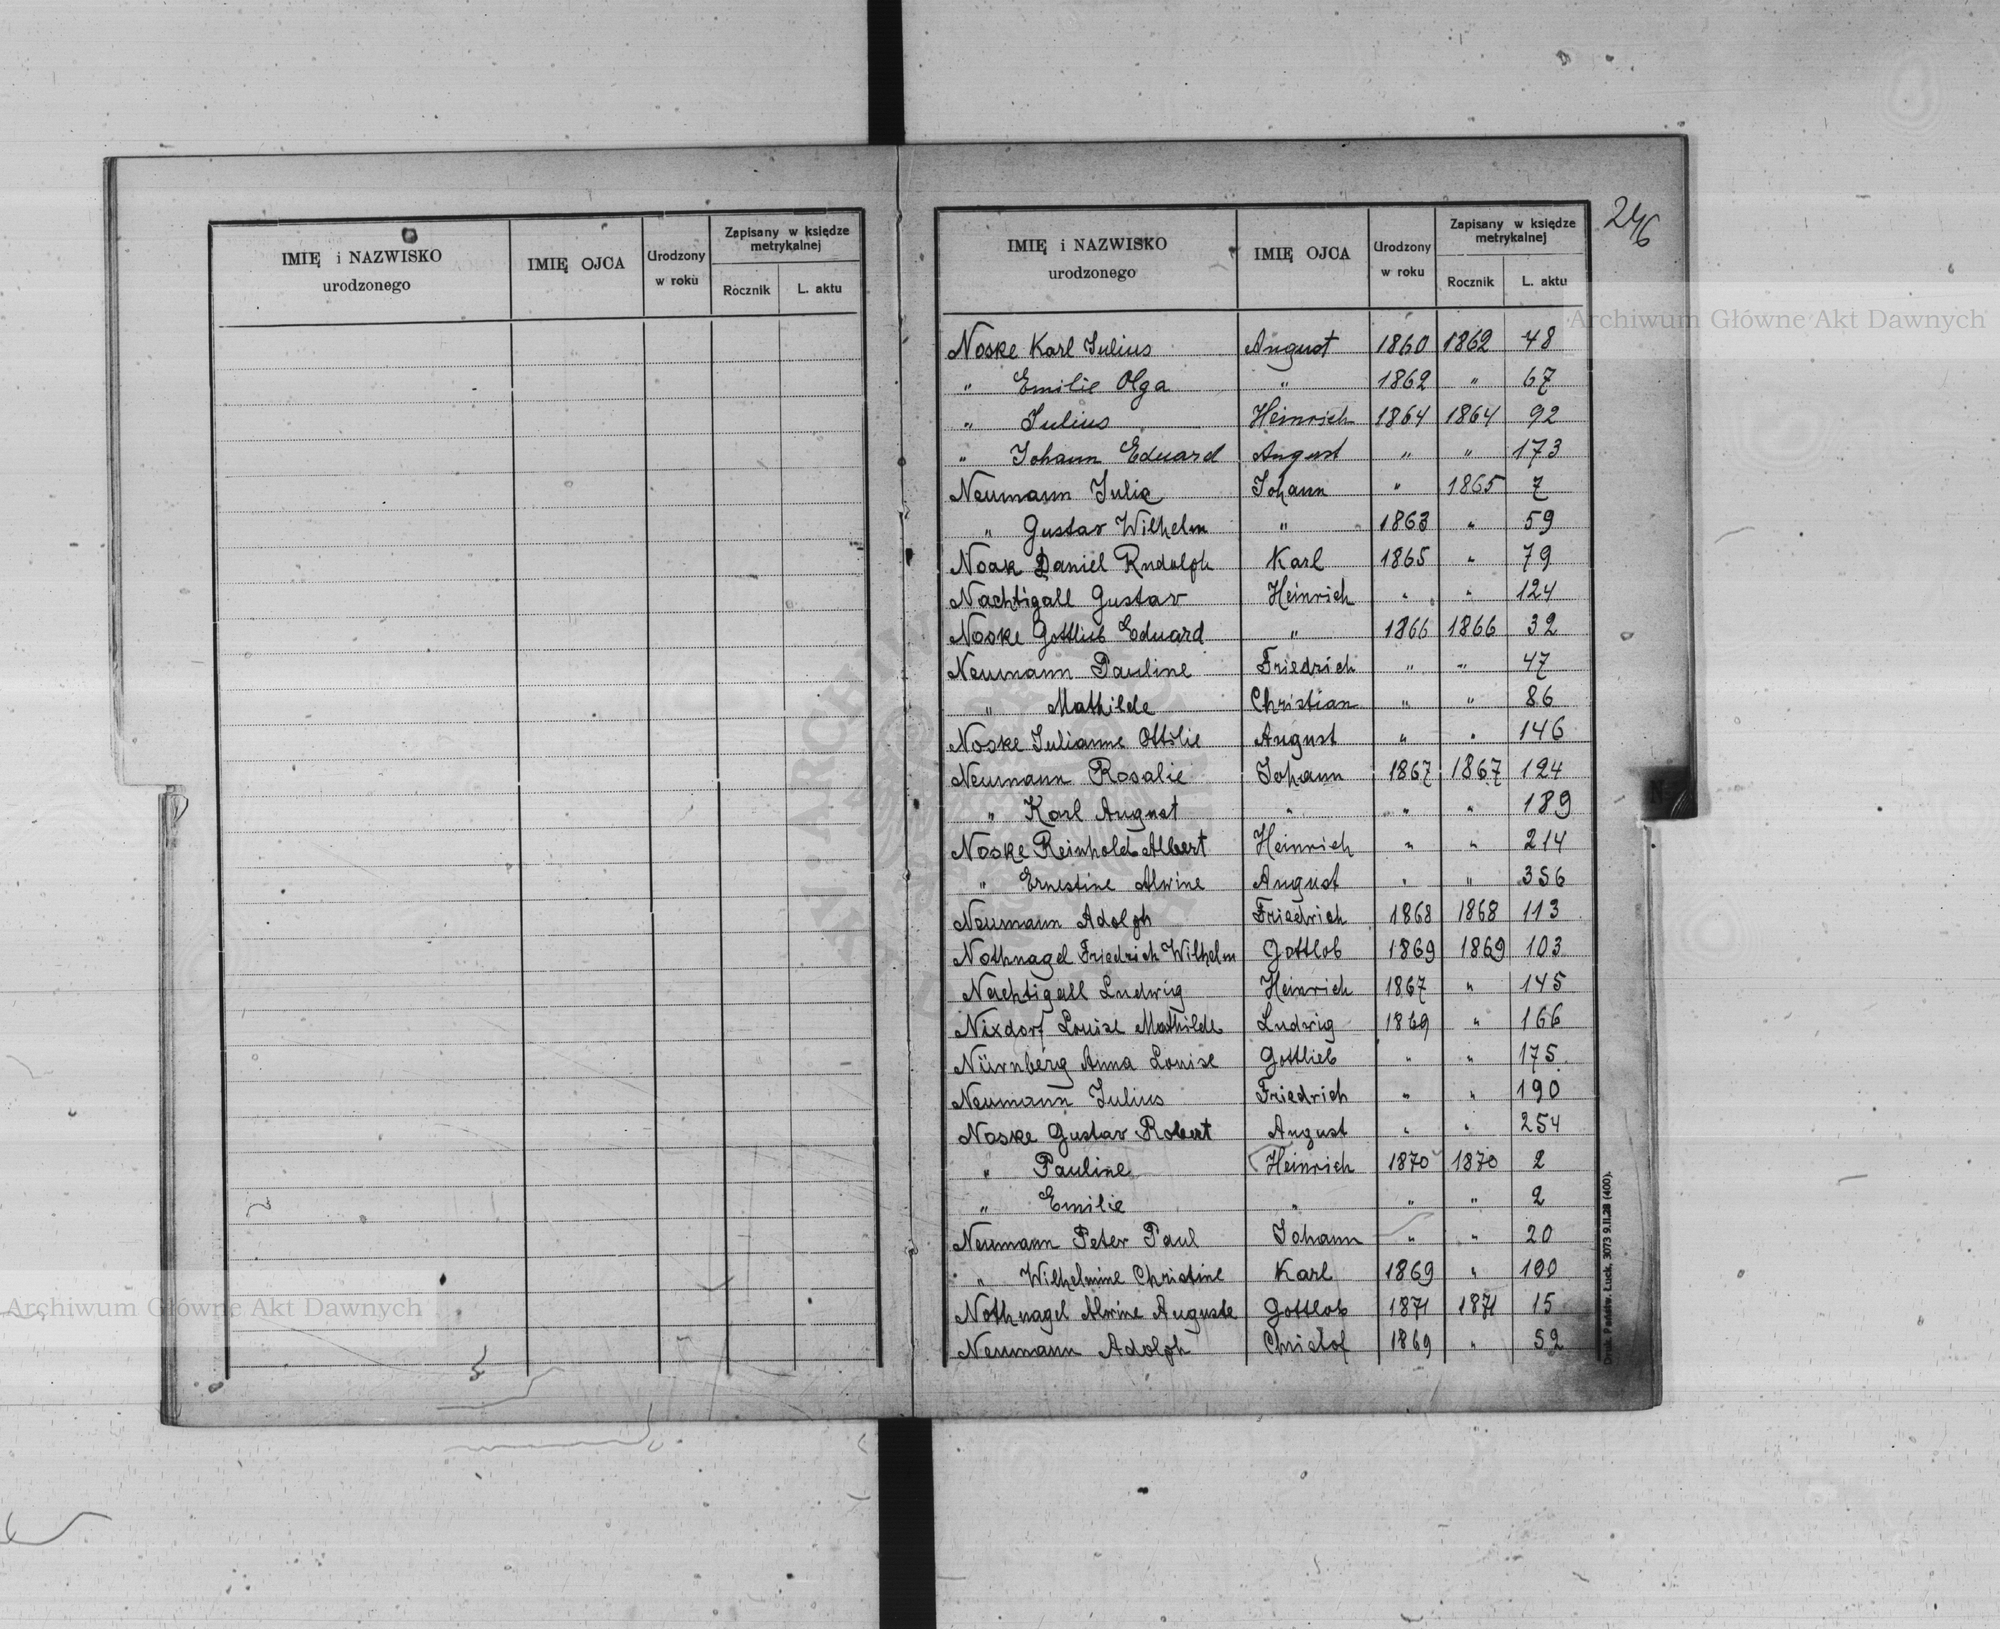 IMIĘ i NAZWISKO urodzonego IMIĘ OJCA Urodzony w roku Zapisany w księdze metrykalnej Rocznik L. aktu
IMIĘ i NAZWISKO urodzonego IMIĘ OJCA Urodzony w roku Zapisany w księdze metrykalnej Rocznik L. aktu
246
Archiwum Główne Akt Dawnych
Noske Karl Julius August 1860 1862 48
" Emilie Olga " 1862 " 67
" Julius Heinrich 1864 1864 92
" Johann Eduard August " " 173
Neumann Julie Johann " 1865 7
" Gustav Wilhelm " 1863 " 59
Noak Daniel Rudolph Karl 1865 " 79
Nachtigall Gustav Heinrich " " 124
Noske Gottlieb Eduard " 1866 1866 32
Neumann Pauline Friedrich " " 47
" Mathilde Christian " " 86
Noske Julianne Ottilie August " " 146
Neumann Rosalie Johann 1867 1867 124
" Karl August " " " 189
Noske Reinhold Albert Heinrich " " 214
" Ernestine Alwine August " " 356
Neumann Adolph Friedrich 1868 1868 113
Nothnagel Friedrich Wilhelm Gottlob 1869 1869 103
Nachtigall Ludwig Heinrich 1867 " 145
Nixdorf Louise Mathilde Ludwig 1869 " 166
Nürnberg Anna Louise Gottlieb " " 175
Neumann Julius Friedrich " " 190
Noske Gustav Robert August " " 254
" Pauline Heinrich 1870 1870 2
" Emilie " " " 2
Neumann Peter Paul Johann " " 20
" Wilhelmine Christine Karl 1869 " 100
Nothnagel Alwine Auguste Gottlob 1871 1871 15
Neumann Adolph Christof 1869 " 52
Druk. Państw. Łuck, 3073 9.II.28 (400).
Archiwum Główne Akt Dawnych